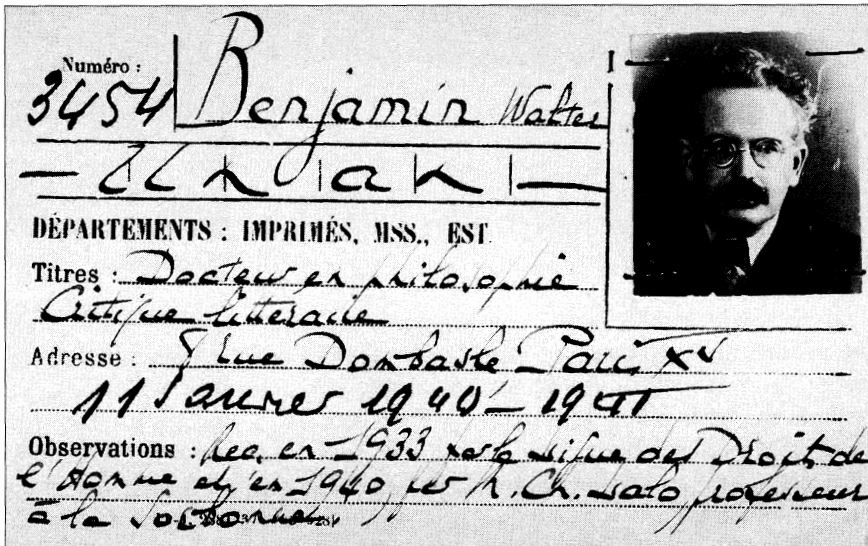 Numéro :
3454 Benjamin Walter
Un an
DÉPARTEMENTS : IMPRIMÉS, MSS., EST
Titres : Docteur en philosophie
Critique litteraire
Adresse : rue Dombasle Paris XV
11 Janvier 1940 - 1941
Observations : Rec. en 1933 par la Ligue des Droits de
l'Homme et en 1940, par M. Ch. Lalo professeur
à la Sorbonne